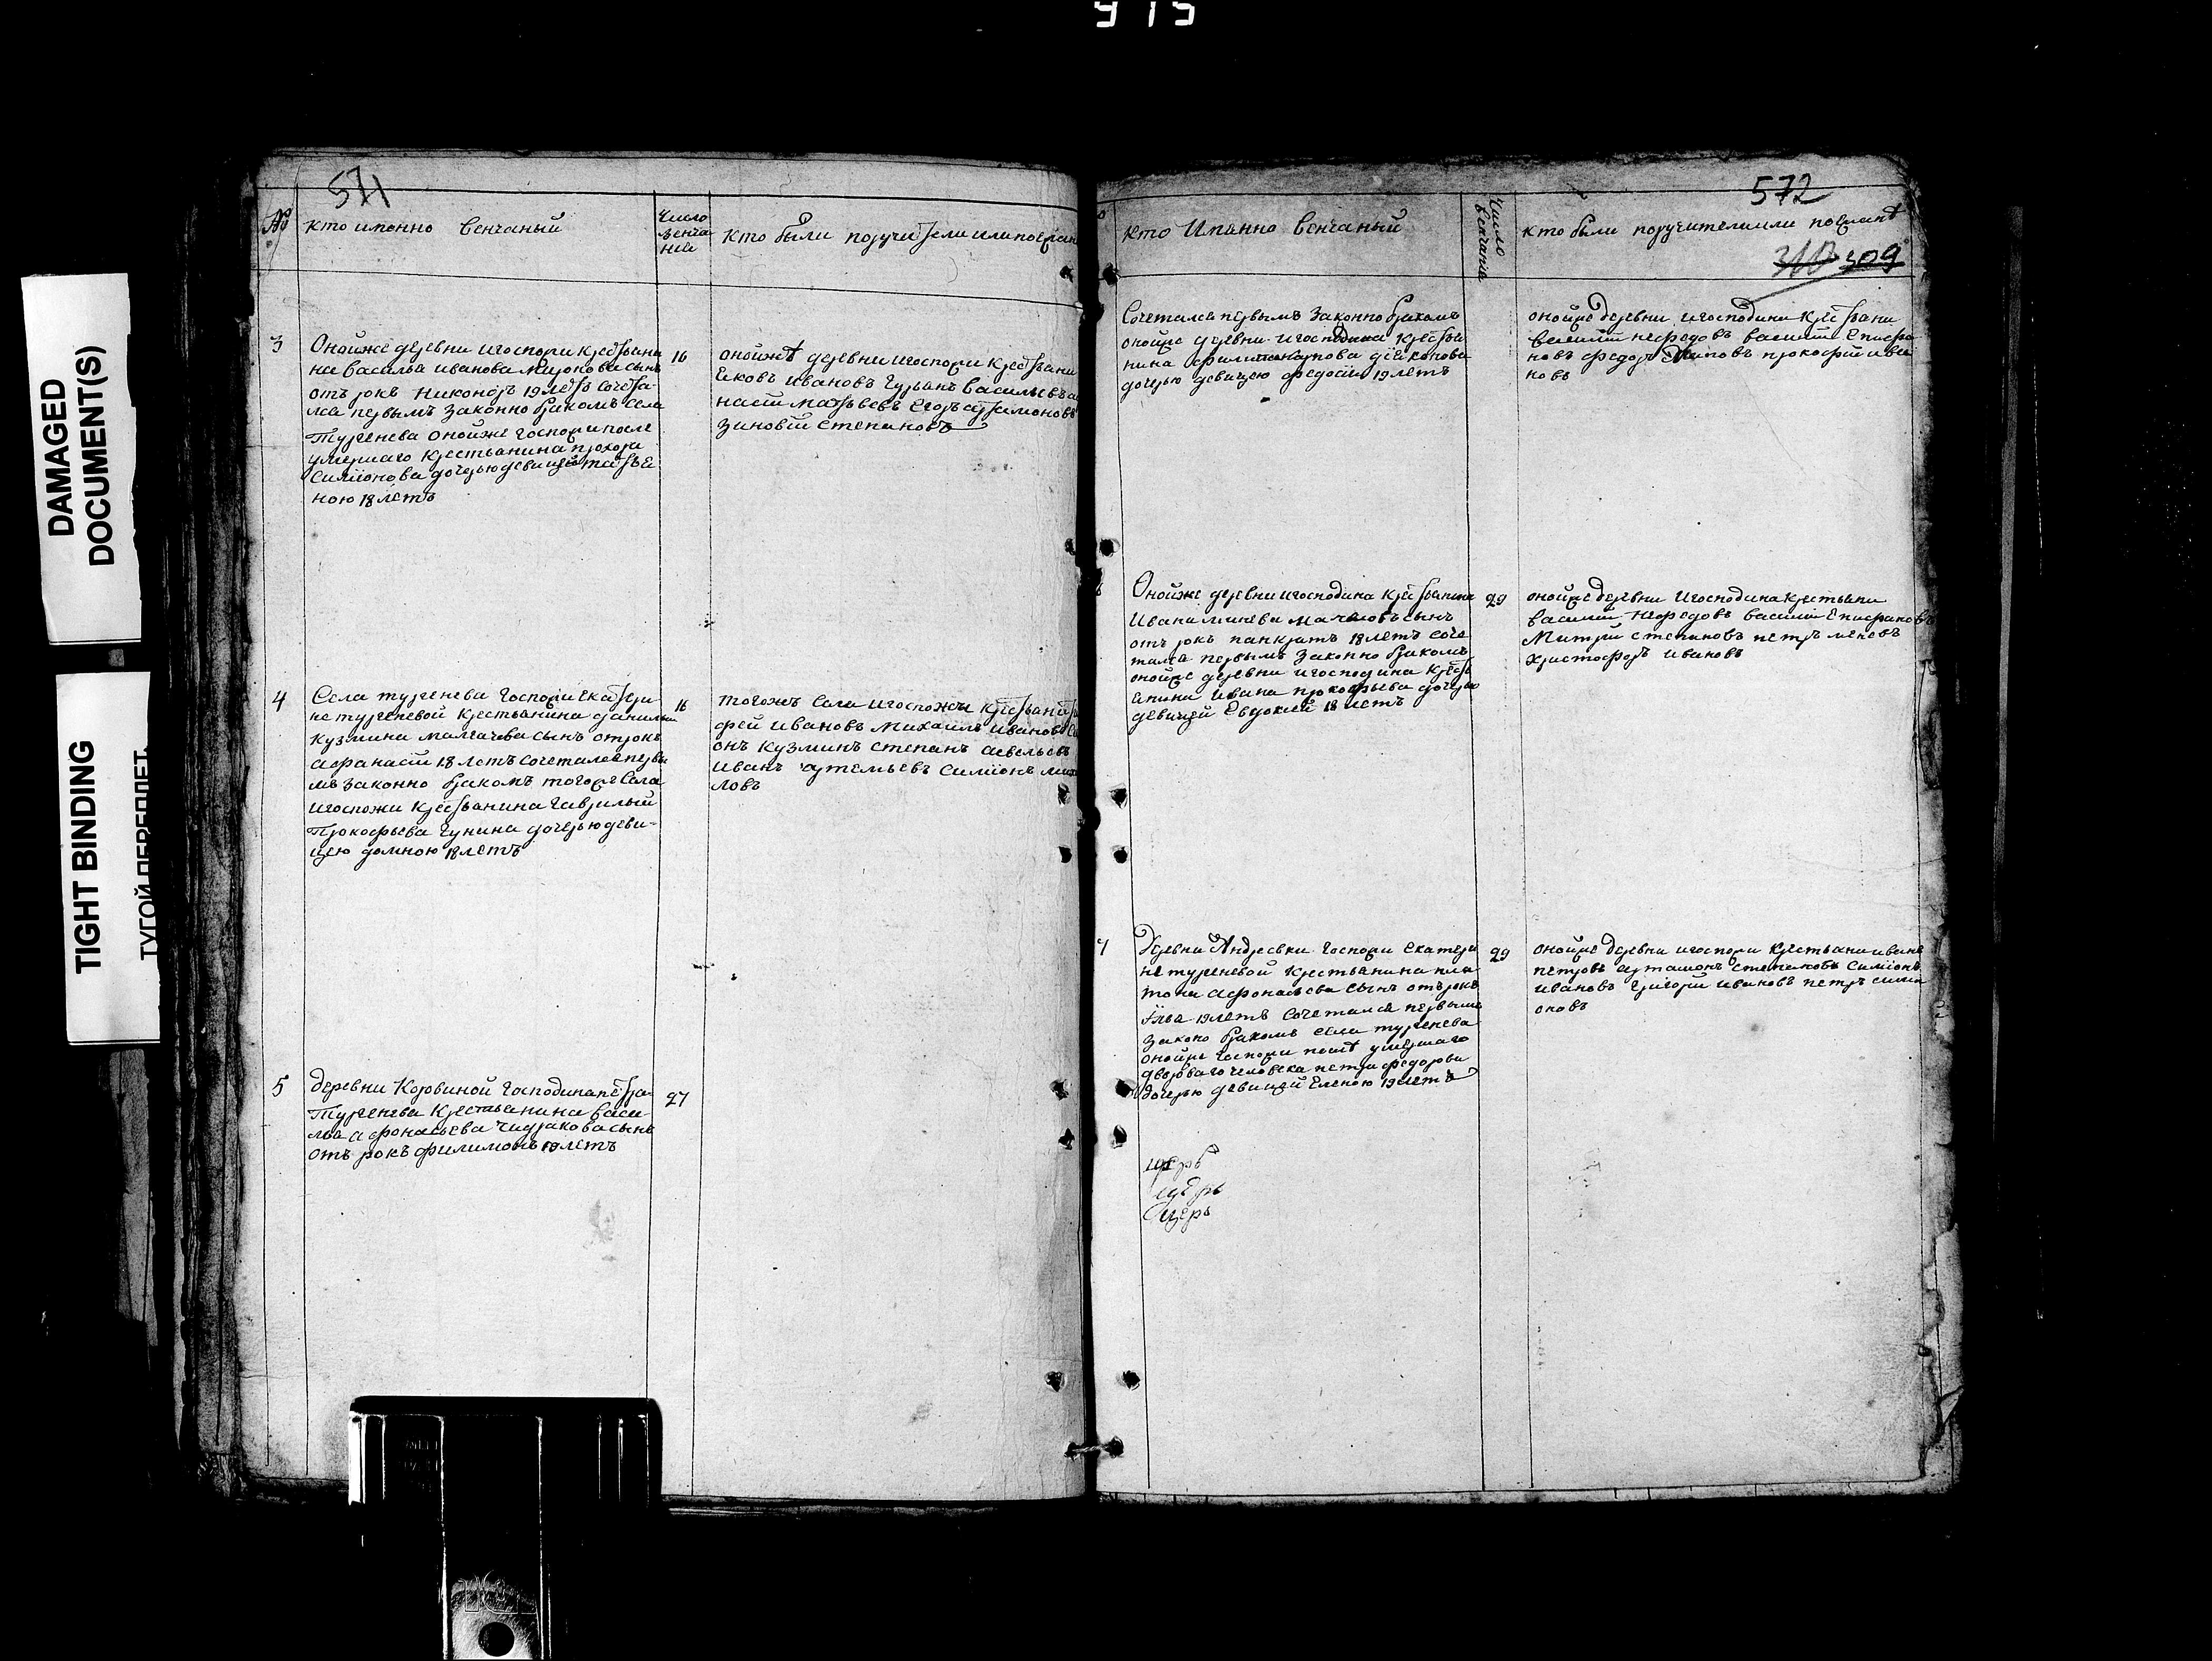 915
DAMAGED
DOCUMENT(S)
TIGHT BINDING
ТУГОЙ ПЕРЕПЛЕТ.
571
№
кто имянно венчаный
Число
венча
ния
кто были поручители или поезжан
3
Онойже деревни и госпожи крестьяни
на василья иванова миронова сынъ
отърокъ никоноръ 19 летъ сочета
лса первымъ законно бракомъ села
тургенева онойже госпожи после
умершаго крестьянина прохора
симионова дочерью девицею татье
ною 18 летъ
16
онойжѣ деревни и госпожи крестьяни
Ековъ ивановъ гурьянъ васильевъ а
насий матвеевъ егоръ артамоновъ
зиновий степановъ
4
Села тургенева госпожи екатери
не тургеневой крестьянина данилы
кузмина малгачева сынъ отрокъ
афанасий 18 летъ сочеталса первы
мъ законно бракомъ тогоже села
и госпожи крестьянина гаврилы
прокофьева гунина дочерью деви-
цею домною 18 летъ
16
тогожъ села и госпожи крестьяна
фей ивановъ михаилъ ивановъ
онъ кузминъ степанъ савельевъ
иванъ артемьевъ симионъ миха
ловъ
5
деревни Коровиной господина петра
Тургенева крестьянина васи-
лья афонасьева чидракова сынъ
отърокъ филимонъ 19 летъ
27
572
кто Имянно венчаный
Число
венчания
кто были поручители или поезжанѣ
310 309
Сочеталса первымъ законно бракомъ
онойже деревни и господина крестья
нина дочерью девицею федосией 19 летъ
онойже деревни и господина крестьяни
василий нефедовъ василий епифа
новъ федоръ прокофий ива
новъ
Онойже деревни и господина крестьянина
Ивана минева сынъ
отърокъ панкратъ 18 летъ соче
талса первымъ законно бракомъ
онойже деревни и господина кресть
енина ивана прокофьева дочерью
девицей евдокией 18 летъ
29
онойже деревни и господина крестьяни
василий нефедовъ василий епифановъ
митрий степановъ петръ меневъ
христофоръ ивановъ
7
деревни Андреевки госпожи екатери
не тургеневой крестьянина пла
тона афонасьева сынъ отърокъ
илья 19 летъ сочеталса первымъ
законо бракомъ села тургенева
онойже госпожи послѣ умершаго
дворо ваго человека петра федорова
дочерью девицей еленою 19 летъ
29
онойже деревни и госпожи крестьяни иванъ
петровъ артамонъ степановъ симионъ
ивановъ григори ивановъ петръ сими
оновъ
церь